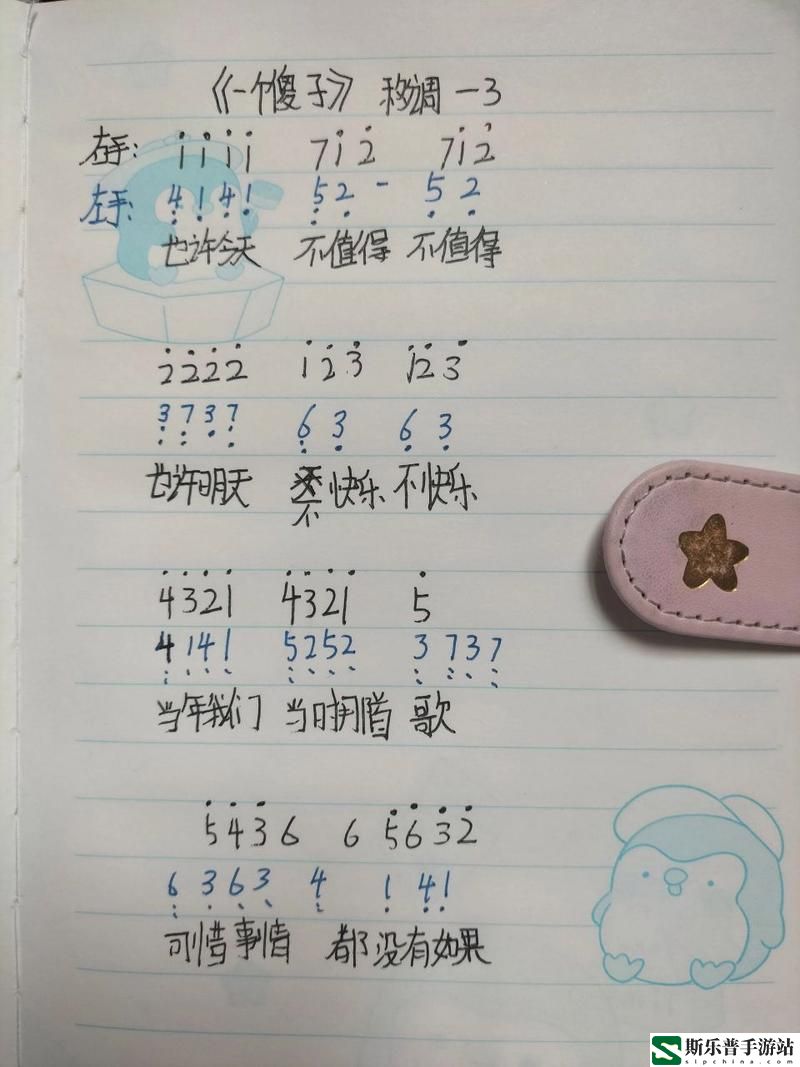 《一个傻子》 移调 -3
右手: i̇ i̇ i̇ i̇ 7 i̇ 2̇ 7 i̇ 2̇
左手: 4 1 4 1 5 2 - 5 2
也许今天 不值得 不值得
2̇ 2̇ 2̇ 2̇ 1̇ 2̇ 3̇ 1̇ 2̇ 3̇
3 7 3 7 6 3 6 3
也许明天 不快乐 不快乐
4̇ 3̇ 2̇ 1̇ 4̇ 3̇ 2̇ 1̇ 5̇
4 1 4 1 5 2 5 2 3 7 3 7
当年我们 当时拥首 歌
5̇ 4̇ 3̇ 6 6 5̇ 6̇ 3̇ 2̇
6 3 6 3 4 1 4 1
可惜事情 都没有如果
斯乐普手游站
slpchina.com